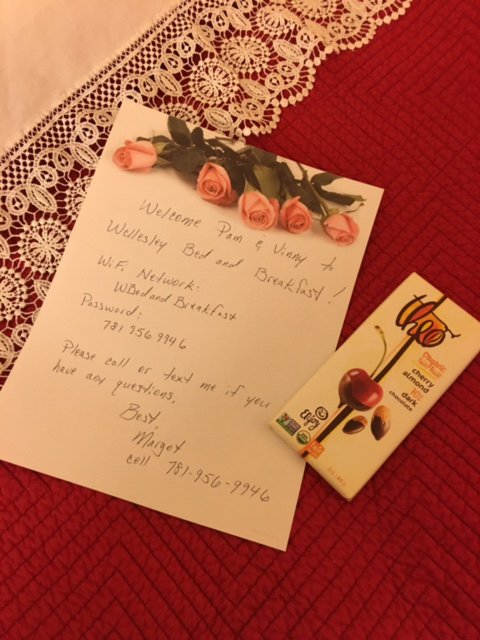 Welcome Pam & Vinny to
Wellesley Bed and Breakfast!
WiFi Network:
WBedandBreakfast
Password:
781 956 9946
Please call or text me if you
have any questions.
Best,
Margot
cell 781-956-9946
theo
Organic
Fair Trade
cherry
almond
70%
dark
chocolate
Enjoy